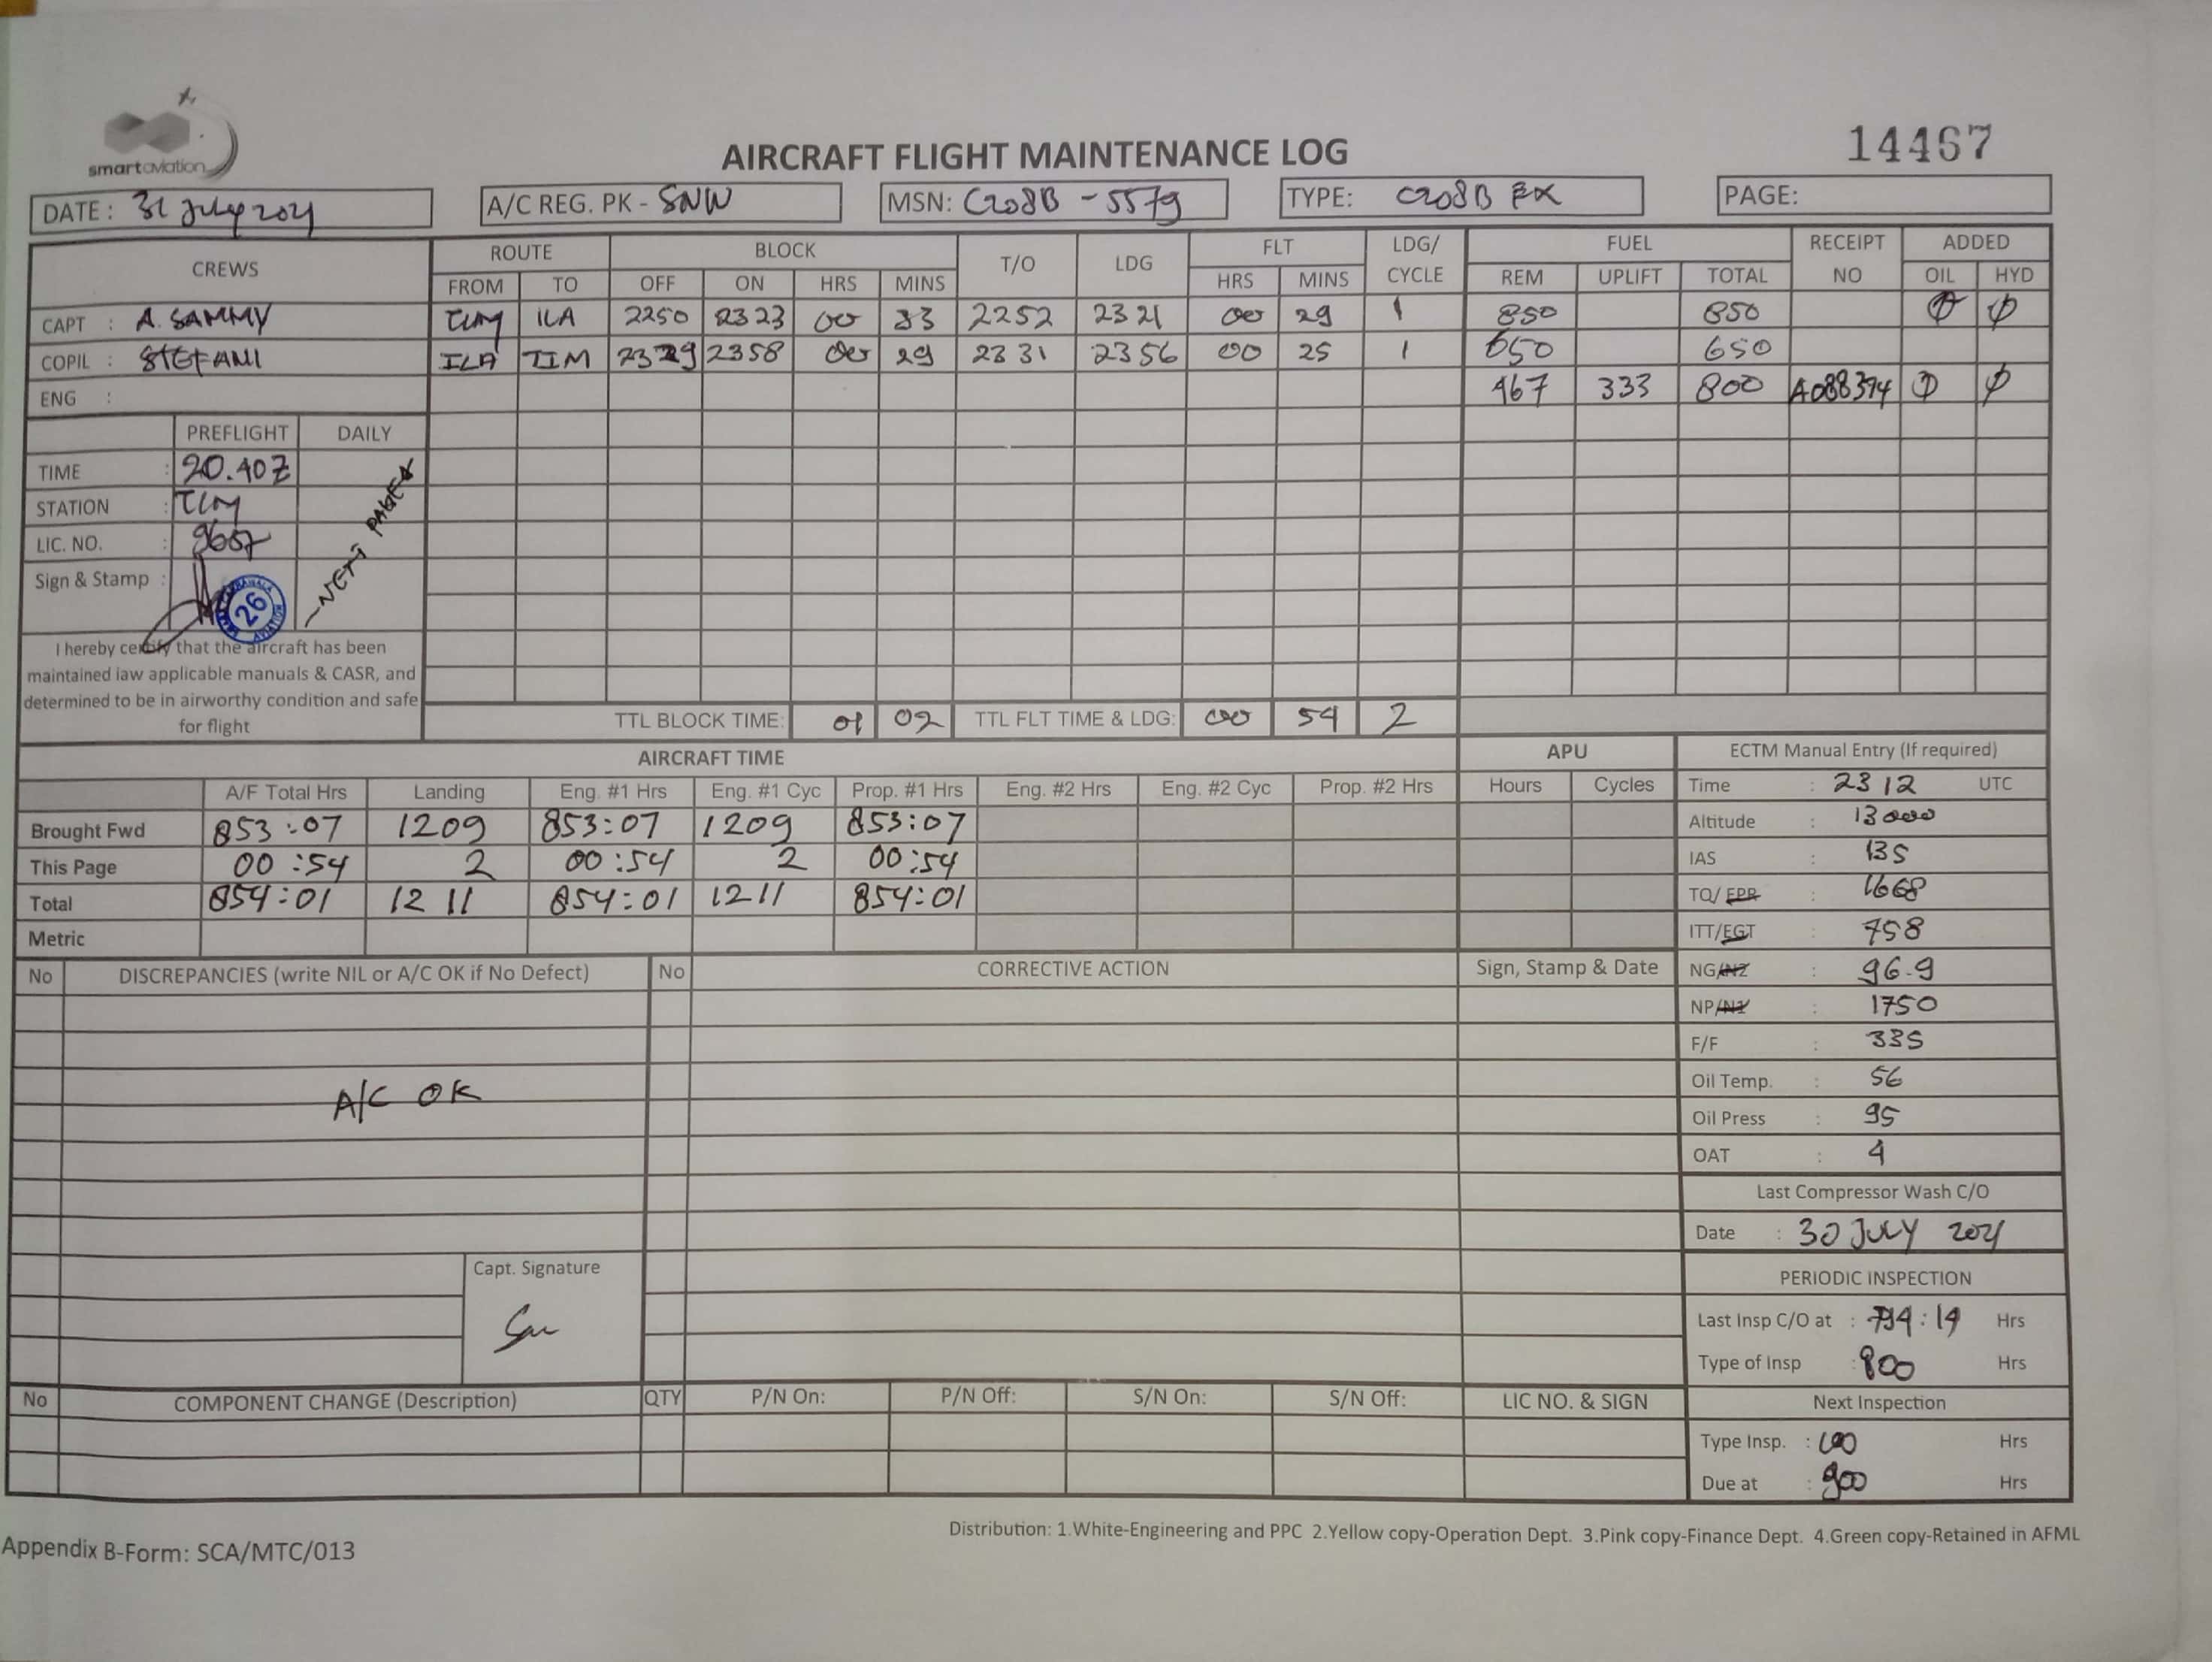 smartaviation
AIRCRAFT FLIGHT MAINTENANCE LOG
14467
DATE : 31 July 2021
A/C REG. PK - SNW
MSN: C208B - 5579
TYPE: C208B EX
PAGE:
CREWS
ROUTE BLOCK T/O LDG FLT LDG/ CYCLE FUEL RECEIPT NO ADDED
FROM TO OFF ON HRS MINS HRS MINS REM UPLIFT TOTAL OIL HYD
CAPT : A. SAMMY TIM ILA 2250 2323 00 33 2252 2321 00 29 1 850 850 Ø Ø
COPIL : STEFANI ILA TIM 2329 2358 00 29 2331 2356 00 25 1 650 650
ENG : 467 333 800 A088374 Ø Ø
PREFLIGHT DAILY
TIME : 20.40Z
STATION : TIM
LIC. NO. : 9657
Sign & Stamp :
26
- NEXT PAGE
I hereby certify that the aircraft has been
maintained iaw applicable manuals & CASR, and
determined to be in airworthy condition and safe
for flight
TTL BLOCK TIME: 01 02 TTL FLT TIME & LDG: 00 54 2
AIRCRAFT TIME
A/F Total Hrs Landing Eng. #1 Hrs Eng. #1 Cyc Prop. #1 Hrs Eng. #2 Hrs Eng. #2 Cyc Prop. #2 Hrs
Brought Fwd 853:07 1209 853:07 1209 853:07
This Page 00:54 2 00:54 2 00:54
Total 854:01 1211 854:01 1211 854:01
Metric
APU
Hours Cycles
ECTM Manual Entry (If required)
Time : 2312 UTC
Altitude : 13000
IAS : 135
TQ/EPR : 1668
ITT/EGT : 758
NG/N2 : 96.9
NP/N1 : 1750
F/F : 335
Oil Temp. : 56
Oil Press : 95
OAT : 4
Last Compressor Wash C/O
Date : 30 JULY 2021
PERIODIC INSPECTION
Last Insp C/O at : 794:19 Hrs
Type of Insp : 800 Hrs
Next Inspection
Type Insp. : 100 Hrs
Due at : 900 Hrs
No DISCREPANCIES (write NIL or A/C OK if No Defect) No CORRECTIVE ACTION Sign, Stamp & Date
A/C OK
Capt. Signature
No COMPONENT CHANGE (Description) QTY P/N On: P/N Off: S/N On: S/N Off: LIC NO. & SIGN
Distribution: 1.White-Engineering and PPC 2.Yellow copy-Operation Dept. 3.Pink copy-Finance Dept. 4.Green copy-Retained in AFML
Appendix B-Form: SCA/MTC/013